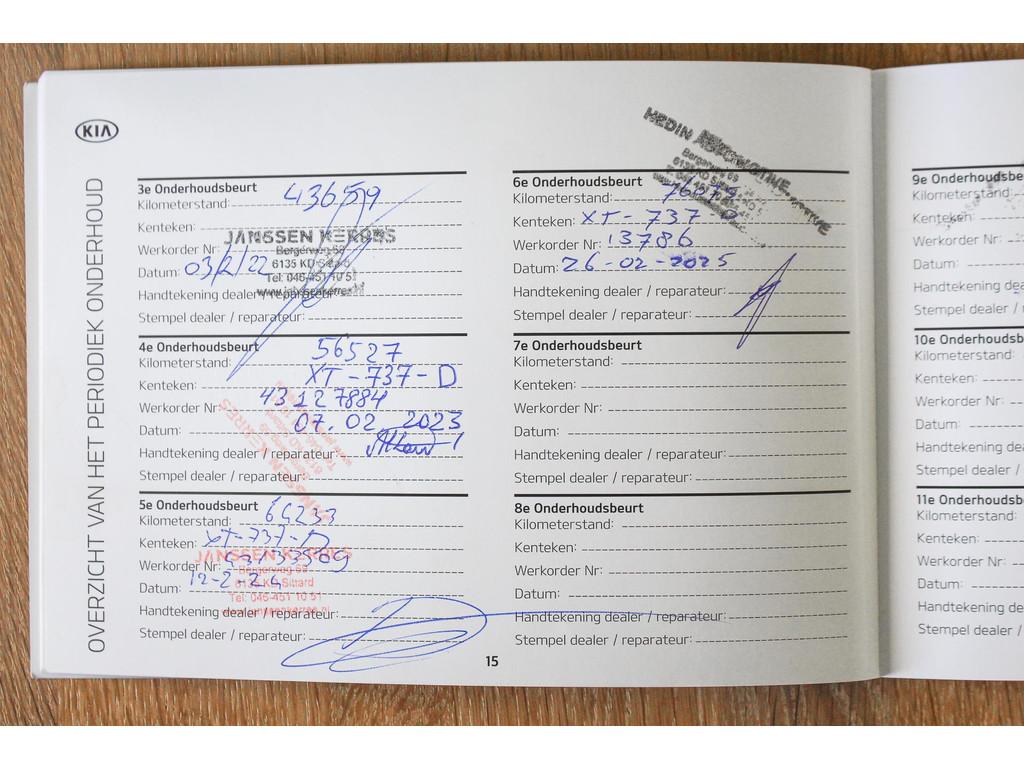 KIA
OVERZICHT VAN HET PERIODIEK ONDERHOUD
3e Onderhoudsbeurt
Kilometerstand: 436519
Kenteken:
JANSSEN KERRES
Werkorder Nr:
Bergerweg 69
6135 KD Sittard
Datum: 03/2/22
Tel: 046-451 10 51
www.janssenkerres.nl
Handtekening dealer / reparateur:
Stempel dealer / reparateur:
4e Onderhoudsbeurt
Kilometerstand: 56527
Kenteken: XT-737-D
Werkorder Nr: 43127884
Datum: 07.02.2023
Handtekening dealer / reparateur:
Stempel dealer / reparateur:
JANSSEN KERRES
5e Onderhoudsbeurt
Kilometerstand: 64233
Kenteken: XT-737-D
JANSSEN KERRES
Werkorder Nr: 43133509
Bergerweg 69
6135 KD Sittard
Datum: 12-2-24
Tel: 046-451 10 51
www.janssenkerres.nl
Handtekening dealer / reparateur:
Stempel dealer / reparateur:
HEDIN AUTOMOTIVE
Bergerweg 69
6e Onderhoudsbeurt
Kilometerstand: 76079
Kenteken: XT-737-D
Werkorder Nr: 13786
Datum: 26-02-2025
Handtekening dealer / reparateur:
Stempel dealer / reparateur:
7e Onderhoudsbeurt
Kilometerstand:
Kenteken:
Werkorder Nr:
Datum:
Handtekening dealer / reparateur:
Stempel dealer / reparateur:
8e Onderhoudsbeurt
Kilometerstand:
Kenteken:
Werkorder Nr:
Datum:
Handtekening dealer / reparateur:
Stempel dealer / reparateur:
15
9e Onderhoudsb
Kilometerstand:
Kenteken:
Werkorder Nr:
Datum:
Handtekening dea
Stempel dealer / r
10e Onderhoudsb
Kilometerstand:
Kenteken:
Werkorder Nr:
Datum:
Handtekening dea
Stempel dealer /
11e Onderhoudsb
Kilometerstand:
Kenteken:
Werkorder Nr:
Datum:
Handtekening dea
Stempel dealer /